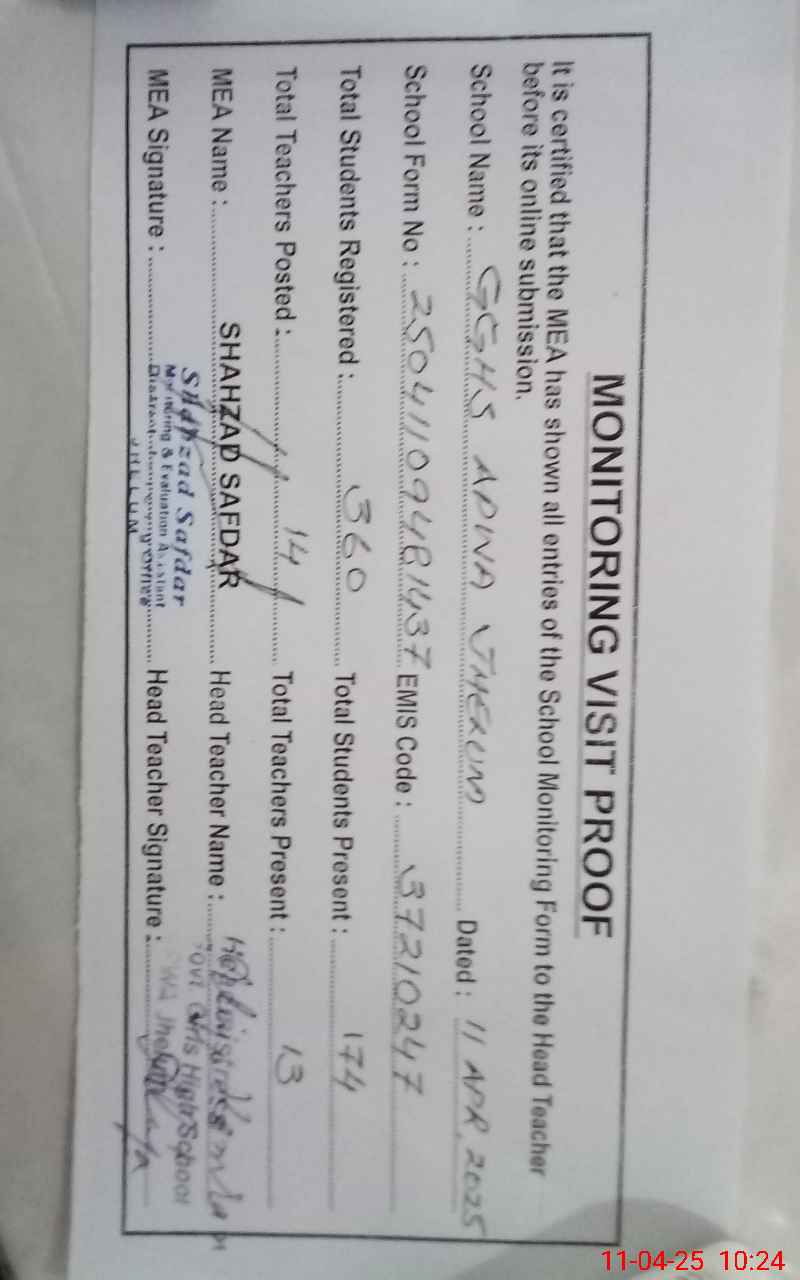 MONITORING VISIT PROOF
It is certified that the MEA has shown all entries of the School Monitoring Form to the Head Teacher
before its online submission.
School Name : GGHS APWA JHELUM Dated : 11 APR, 2025
School Form No : 25041109481437 EMIS Code : 37210247
Total Students Registered : 360 Total Students Present : 174
Total Teachers Posted : 14 Total Teachers Present : 13
MEA Name : SHAHZAD SAFDAR Head Teacher Name :
MEA Signature : Head Teacher Signature :
Shahzad Safdar
Monitoring & Evaluation Assistant
JHELUM
Headmistress
Govt Girls High School
APWA Jhelum
11-04-25 10:24